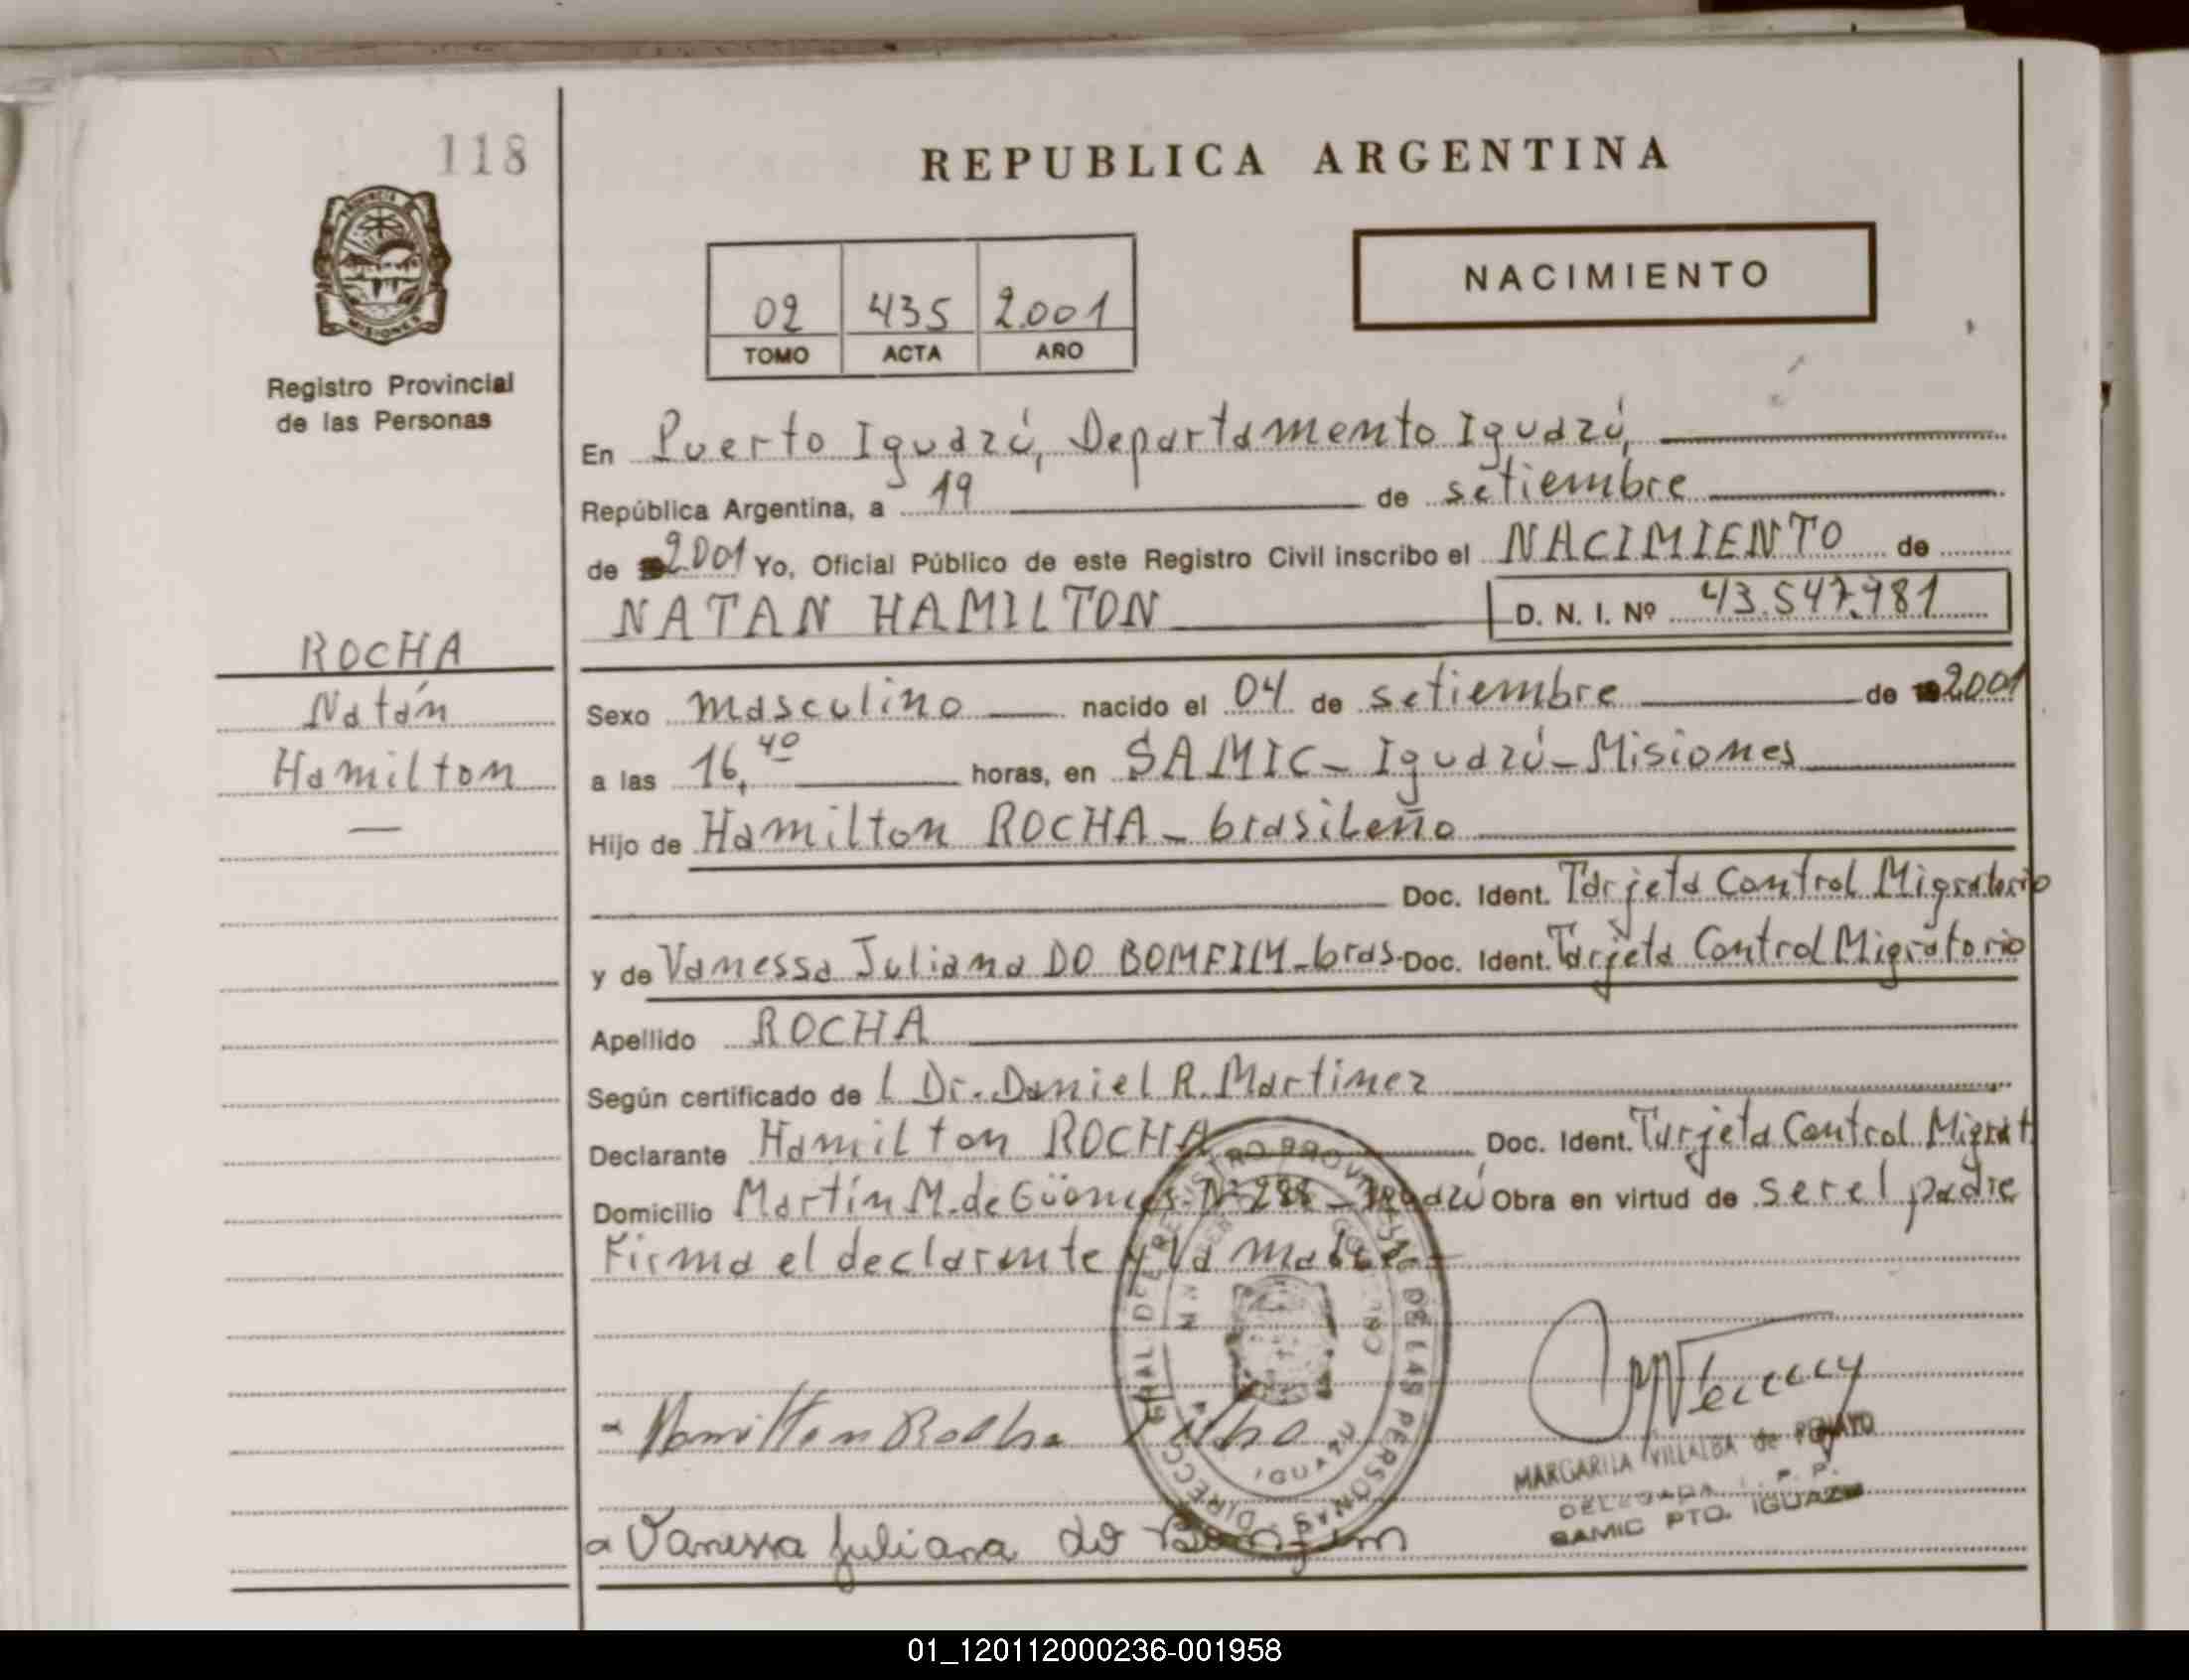 118
REPUBLICA ARGENTINA
NACIMIENTO
02 435 2.001
TOMO ACTA AÑO
Registro Provincial
de las Personas
En Puerto Iguazú, Departamento Iguazú,
República Argentina, a 19 de setiembre
de 2001 Yo, Oficial Público de este Registro Civil inscribo el NACIMIENTO de
NATAN HAMILTON D. N. I. Nº 43.547.981
ROCHA
Natán
Hamilton
Sexo masculino nacido el 04 de setiembre de 2001
a las 16,40 horas, en SAMIC - Iguazú - Misiones
Hijo de Hamilton ROCHA - brasileño
Doc. Ident. Tarjeta Control Migratorio
y de Vanessa Juliana DO BOMFIM - bras. Doc. Ident. Tarjeta Control Migratorio
Apellido ROCHA
Según certificado de l Dr. Daniel R. Martinez
Declarante Hamilton ROCHA Doc. Ident. Tarjeta Control Migrat.
Domicilio Martín M. de Güemes Nº Iguazú Obra en virtud de ser el padre
Firma el declarante y la madre
Hamilton Rocha Filho
Vanessa Juliana do Bomfim
DIRECCION REGISTRO PROVINCIAL DE LAS PERSONAS
IGUAZU
MARGARITA VILLALBA de PENAYO
DELEGADA R. P. P.
SAMIC PTO. IGUAZU
01_120112000236-001958